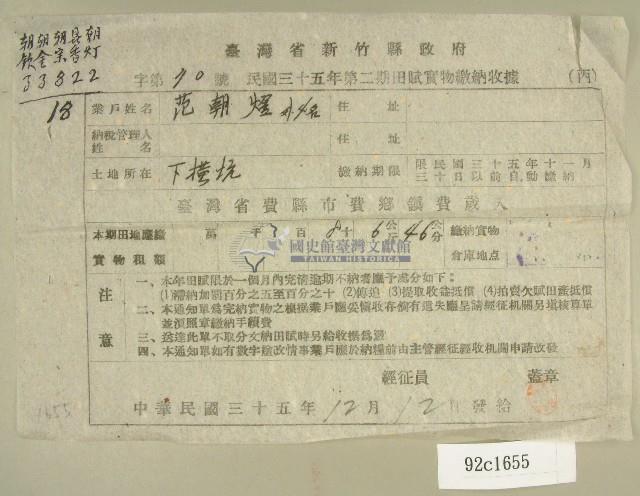 朝 朝 朝 昌 朝
欽 金 宗 香 灯
3 3 8 2 2
18
臺灣省新竹縣政府
字第 70 號 民國三十五年第二期田賦實物繳納收據 (丙)
業戶姓名 范朝燈 外4名 住址
納稅管理人姓名 住址
土地所在 下横坑 繳納期限 限民國三十五年十一月三十日以前自動繳納
臺灣省費縣市費鄉鎮費歲入
本期田地應繳實物租額 萬 千 3 百 8 十 6 公斤 46 公分 繳納實物倉庫地点
國史館臺灣文獻館
TAIWAN HISTORICA
注意
一、本年田賦限於一個月內完清逾期不納者應予處分如下:
(1)滯納加罰百分之五至百分之十 (2)傳追 (3)提取收益抵償 (4)拍賣欠賦田產抵償
二、本通知單為完納實物之根據業戶應妥慎收存倘有遺失應呈請經征机關另填核算單
並須照章繳納手續費
三、送達此單不取分文納田賦時另給收據為憑
四、本通知單如有數字塗改情事業戶應於納糧前由主管經征經收机關申請改發
經征員 蓋章
中華民國三十五年 12 月 12 日發給
1655
92c1655